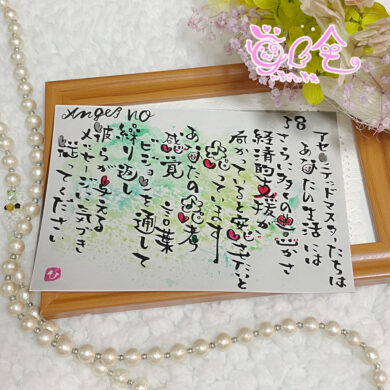 Angel no
38
アセンデッドマスターたちは
あなたの生活には
さらに多くの豊かさ
経済的支援が
向かっていると
います
あなたの思考
感覚 言葉
ビジョンを通して
繰り返し
彼らが与える
メッセージに気づき
従ってください